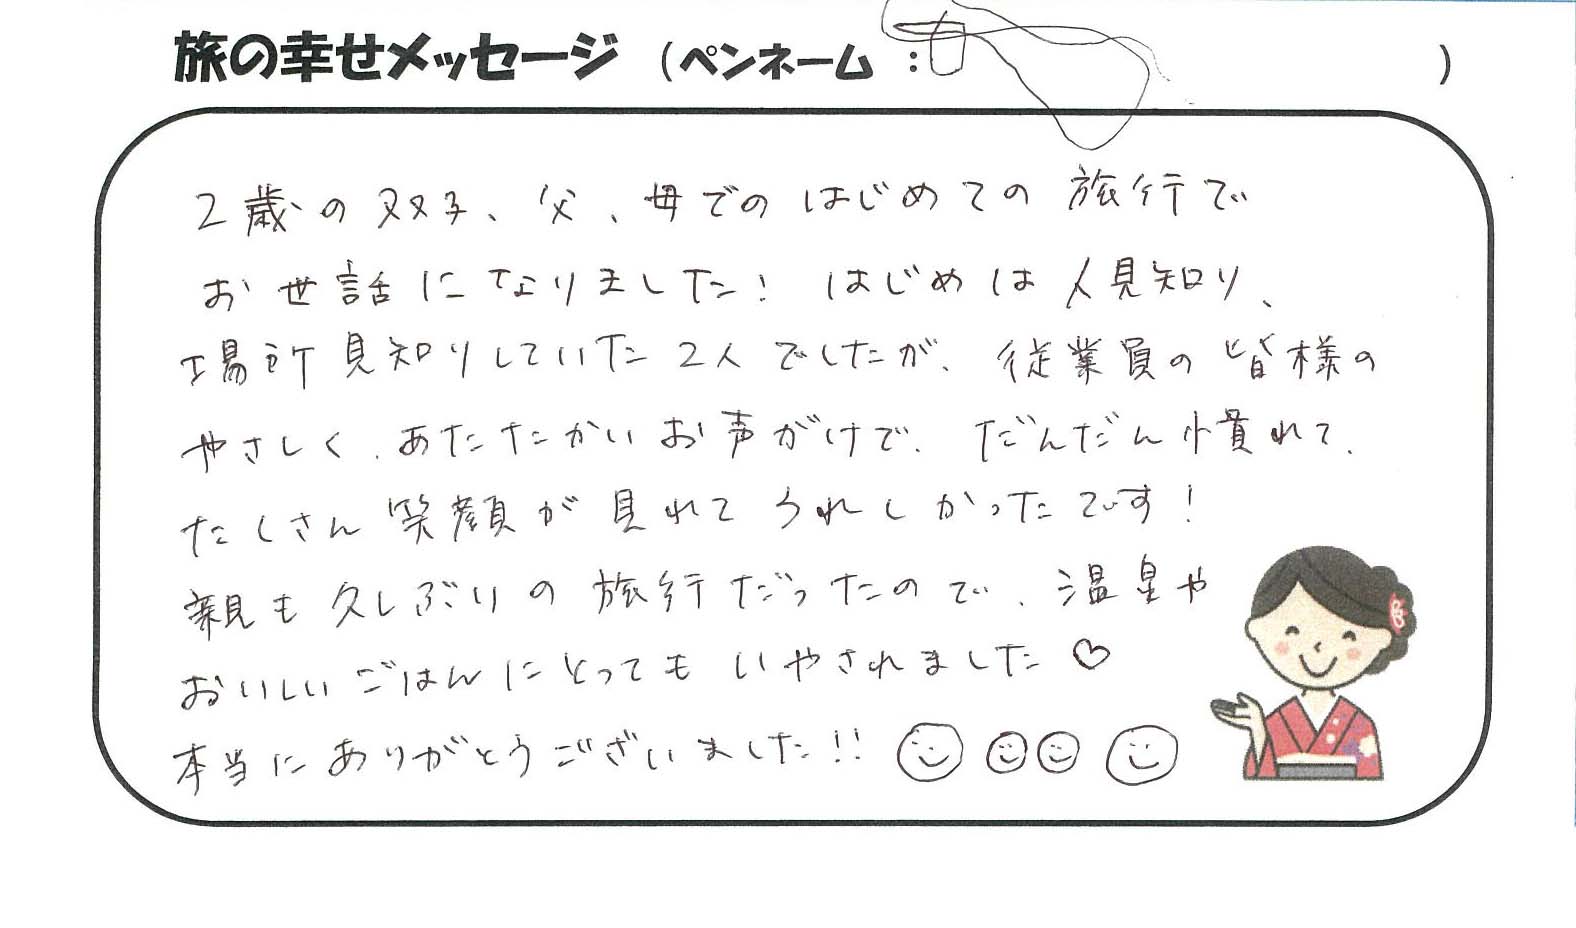 旅の幸せメッセージ (ペンネーム : )
2歳の双子、父、母でのはじめての旅行で
お世話になりました! はじめは人見知り、
場所見知りしていた2人でしたが、従業員の皆様の
やさしく、あたたかいお声がけで、だんだん慣れて、
たくさん笑顔が見れてうれしかったです!
親も久しぶりの旅行だったので、温泉や
おいしいごはんにとってもいやされました♡
本当にありがとうございました!!